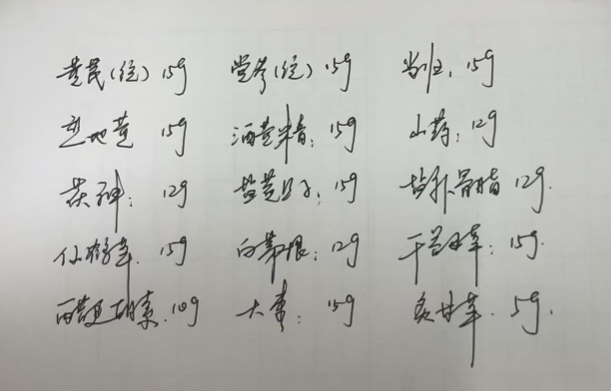 黄芪(炙) 15g 党参(炙) 15g 当归: 15g
生地黄 15g 酒黄精: 15g 山药: 12g
茯神: 12g 盐菟丝子: 15g 盐补骨脂 12g.
仙鹤草. 15g 白茅根: 12g 干益母草: 15g.
醋延胡索. 10g 大枣: 15g 炙甘草. 5g.